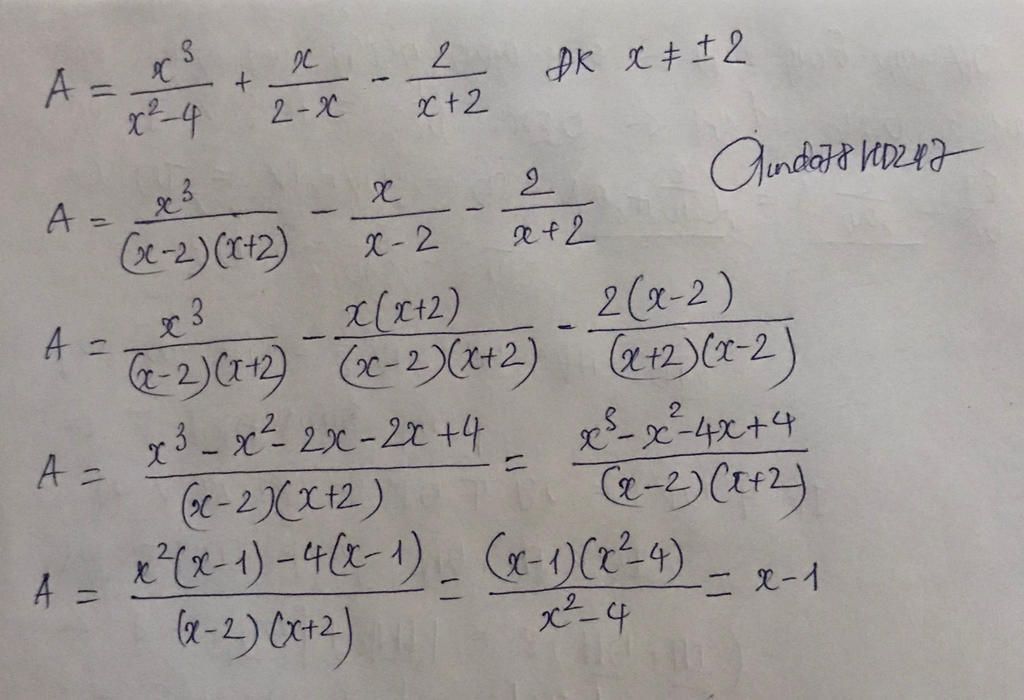 A = x³/(x²-4) + x/(2-x) - 2/(x+2) ĐK x ≠ ±2
A = x³/((x-2)(x+2)) - x/(x-2) - 2/(x+2)
A = x³/((x-2)(x+2)) - x(x+2)/((x-2)(x+2)) - 2(x-2)/((x+2)(x-2))
A = (x³ - x² - 2x - 2x + 4)/((x-2)(x+2)) = (x³ - x² - 4x + 4)/((x-2)(x+2))
A = (x²(x-1) - 4(x-1))/((x-2)(x+2)) = ((x-1)(x²-4))/(x²-4) = x-1